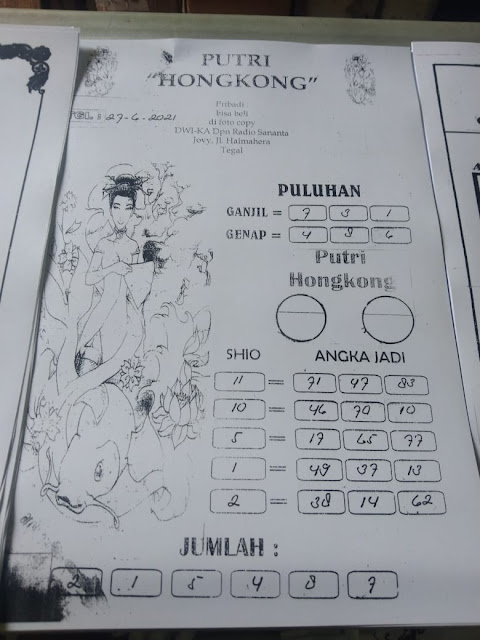 PUTRI
"HONGKONG"
Pribadi
bisa beli
di foto copy
DWI-KA Dpn Radio Sananta
Jovy, Jl. Halmahera
Tegal
TGL : 27-6-2021
PULUHAN
GANJIL = 7 3 1
GENAP = 4 8 6
Putri
Hongkong
SHIO ANGKA JADI
11 = 71 47 83
10 = 46 70 10
5 = 17 65 77
1 = 49 37 13
2 = 38 14 62
JUMLAH :
2 1 5 4 8 7